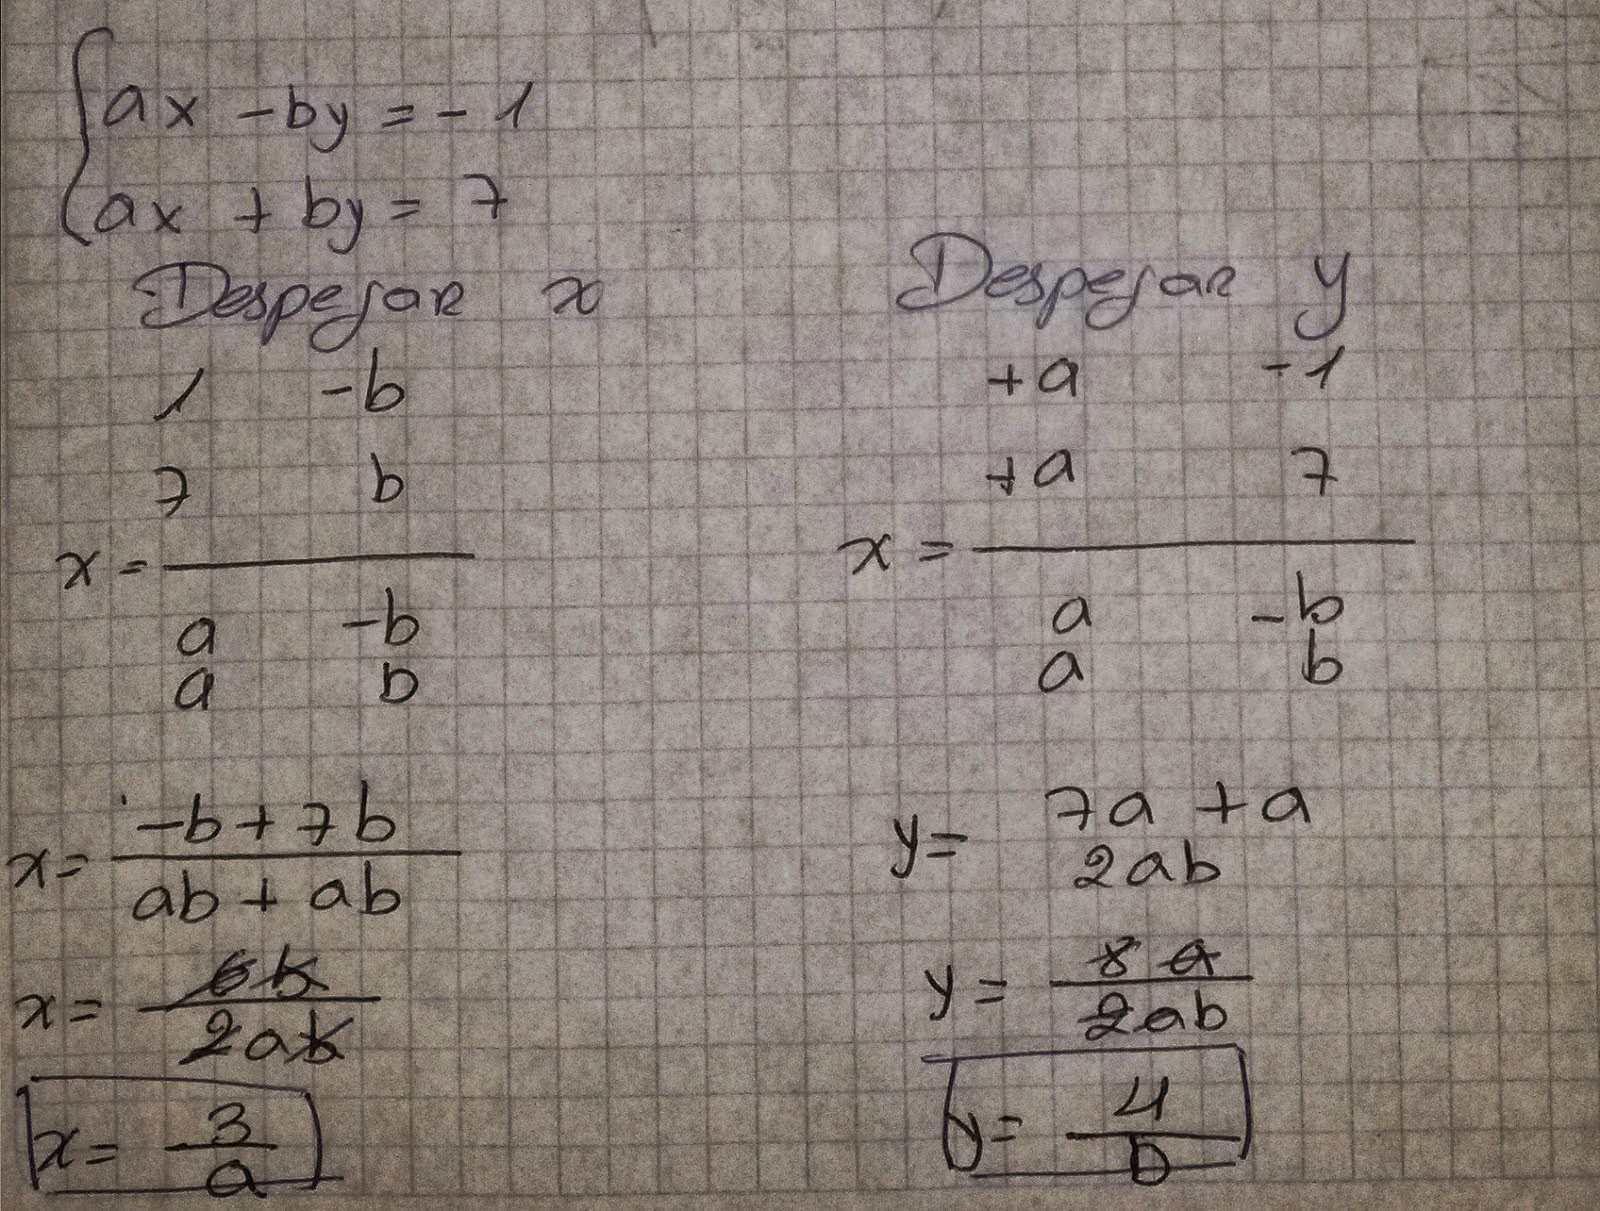 ax - by = - 1
ax + by = 7
Despejar x
1 -b
7 b
x =
a -b
a b
x = -b + 7b
ab + ab
x = 6b
2ab
x = 3
a
Despejar y
+a -1
+a 7
x =
a -b
a b
y = 7a + a
2ab
y = 8a
2ab
y = 4
b